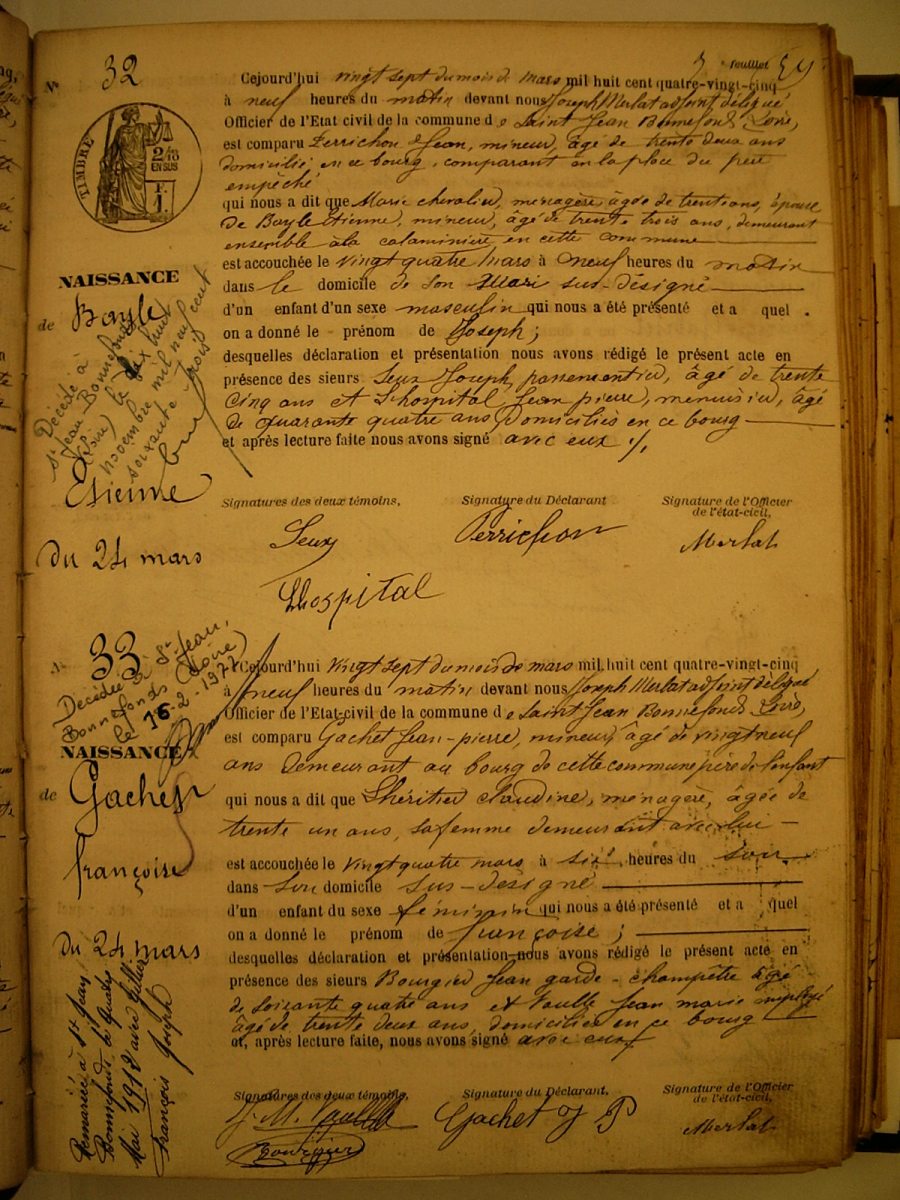 3 feuillet
N° 32
Cejourd'hui vingt sept du mois de mars mil huit cent quatre-vingt-cinq
à neuf heures du matin devant nous Joseph Merlat adjoint délégué
Officier de l'Etat civil de la commune de Saint Jean Bonnefonds Loire,
est comparu Perrichon Jean, mineur, âgé de trente deux ans
domicilié en ce bourg, comparant en la place du père
empêché
qui nous a dit que Marie chevalier, menagère, âgée de trente ans, épouse
de Bayle Etienne, mineur, âgé de trente trois ans, demeurant
ensemble à la calaminière en cette commune
est accouchée le vingt quatre mars à neuf heures du matin
dans le domicile de son Mari sus-désigné
d'un enfant d'un sexe masculin qui nous a été présenté et a quel
on a donné le prénom de Joseph ;
desquelles déclaration et présentation nous avons rédigé le présent acte en
présence des sieurs Seux Joseph, passementier, âgé de trente
cinq ans et Lhospital Jean pierre, menuisier, âgé
de quarante quatre ans Domiciliés en ce bourg
et après lecture faite nous avons signé avec eux ./.
TIMBRE
2/10
EN SUS
F.
1.
NAISSANCE
de Bayle
Etienne
du 24 mars
Décédé à
St Jean Bonnefonds
(Loire) le dix huit
novembre mil neuf cent
soixante trois
Signatures des deux témoins,
Signature du Déclarant
Signature de l'Officier
de l'état-civil,
Seux
Perrichon
Merlat
Lhospital
33
Décédée à St Jean,
Bonnefonds (Loire)
le 16-2-1972
NAISSANCE
de Gachet
françoise
Du 24 mars
Remariée à St Jean
Bonnefonds le quatre
Mai 1918 avec
François Joseph
Cejourd'hui vingt sept du mois de mars mil huit cent quatre-vingt-cinq
à neuf heures du matin devant nous Joseph Merlat adjoint délégué
Officier de l'Etat-civil de la commune de Saint Jean Bonnefonds Loire,
est comparu Gachet Jean-pierre, mineur, âgé de vingt neuf
ans Demeurant au bourg de cette commune père de l'enfant
qui nous a dit que Lhéritier Claudine, ménagère, âgée de
trente un ans, sa femme demeurant avec lui
est accouchée le vingt quatre mars à six heures du soir
dans son domicile sus-designé
d'un enfant du sexe féminin qui nous a été présenté et a quel
on a donné le prénom de françoise ;
desquelles déclaration et présentation nous avons rédigé le présent acte en
présence des sieurs Bourgier Jean garde-champêtre âgé
de soixante quatre ans et Jean marie employé
âgé de trente deux ans, domiciliés en ce bourg
et, après lecture faite, nous avons signé avec eux
Signatures des deux témoins,
Signature du Déclarant,
Signature de l'Officier
de l'état-civil,
J. M.
Gachet J P
Merlat
Bourgier